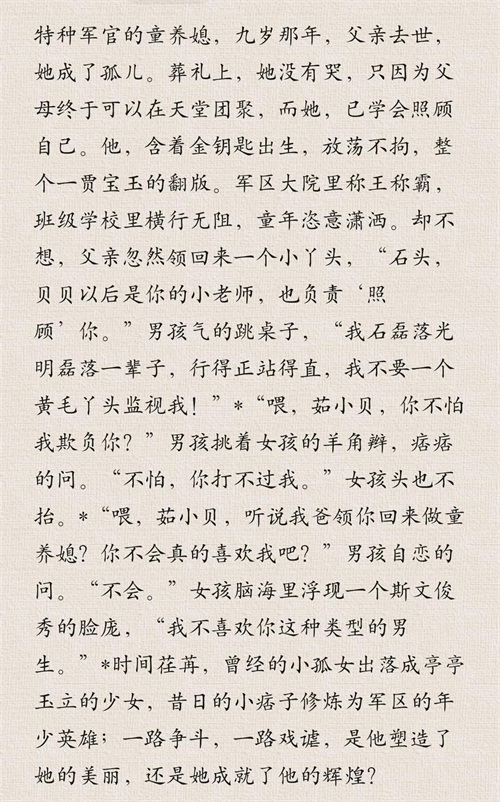 特种军官的童养媳，九岁那年，父亲去世，
她成了孤儿。葬礼上，她没有哭，只因为父
母终于可以在天堂团聚，而她，已学会照顾
自己。他，含着金钥匙出生，放荡不拘，整
个一贾宝玉的翻版。军区大院里称王称霸，
班级学校里横行无阻，童年恣意潇洒。却不
想，父亲忽然领回来一个小丫头，“石头，
贝贝以后是你的小老师，也负责‘照
顾’你。”男孩气的跳桌子，“我石磊落光
明磊落一辈子，行得正站得直，我不要一个
黄毛丫头监视我！”*“喂，茹小贝，你不怕
我欺负你？”男孩挑着女孩的羊角辫，痞痞
的问。“不怕，你打不过我。”女孩头也不
抬。*“喂，茹小贝，听说我爸领你回来做童
养媳？你不会真的喜欢我吧？”男孩自恋的
问。“不会。”女孩脑海里浮现一个斯文俊
秀的脸庞，“我不喜欢你这种类型的男
生。”*时间荏苒，曾经的小孤女出落成亭亭
玉立的少女，昔日的小痞子修炼为军区的年
少英雄；一路争斗，一路戏谑，是他塑造了
她的美丽，还是她成就了他的辉煌？